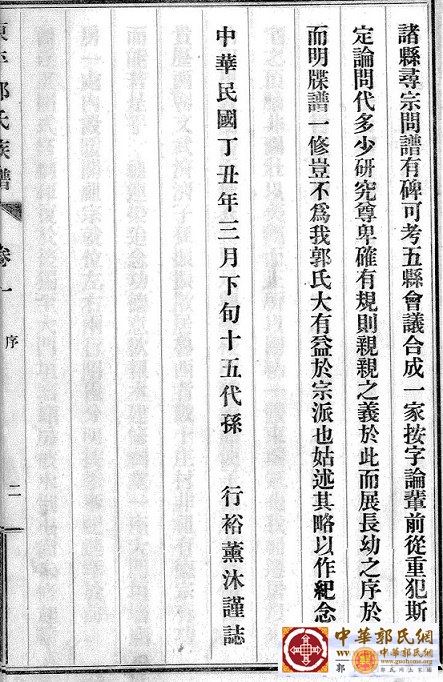 諸縣尋宗問譜有碑可考五縣會議合成一家按字論輩前從重犯斯
定論問代多少研究尊卑確有規則親親之義於此而展長幼之序於
而明牒譜一修豈不為我郭氏大有益於宗派也姑述其略以作紀念
中華民國丁丑年三月下旬十五代孫 行裕薰沐謹誌
郭氏族譜
卷一
序
二
中華郭氏網
中華郭氏網
www.guohome.org
郭氏網上家園